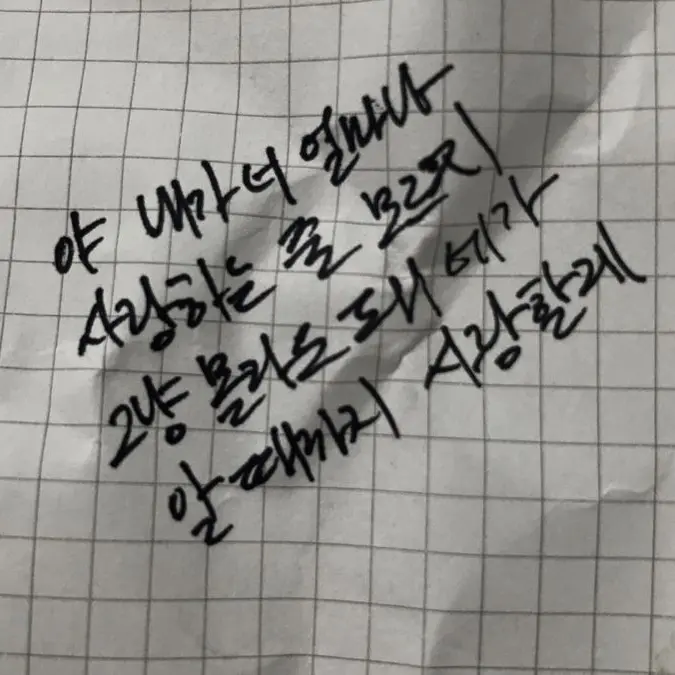 야 내가 너 얼마나
사랑하는 줄 모르지
그냥 몰라도 돼 네가
알 때까지 사랑할게